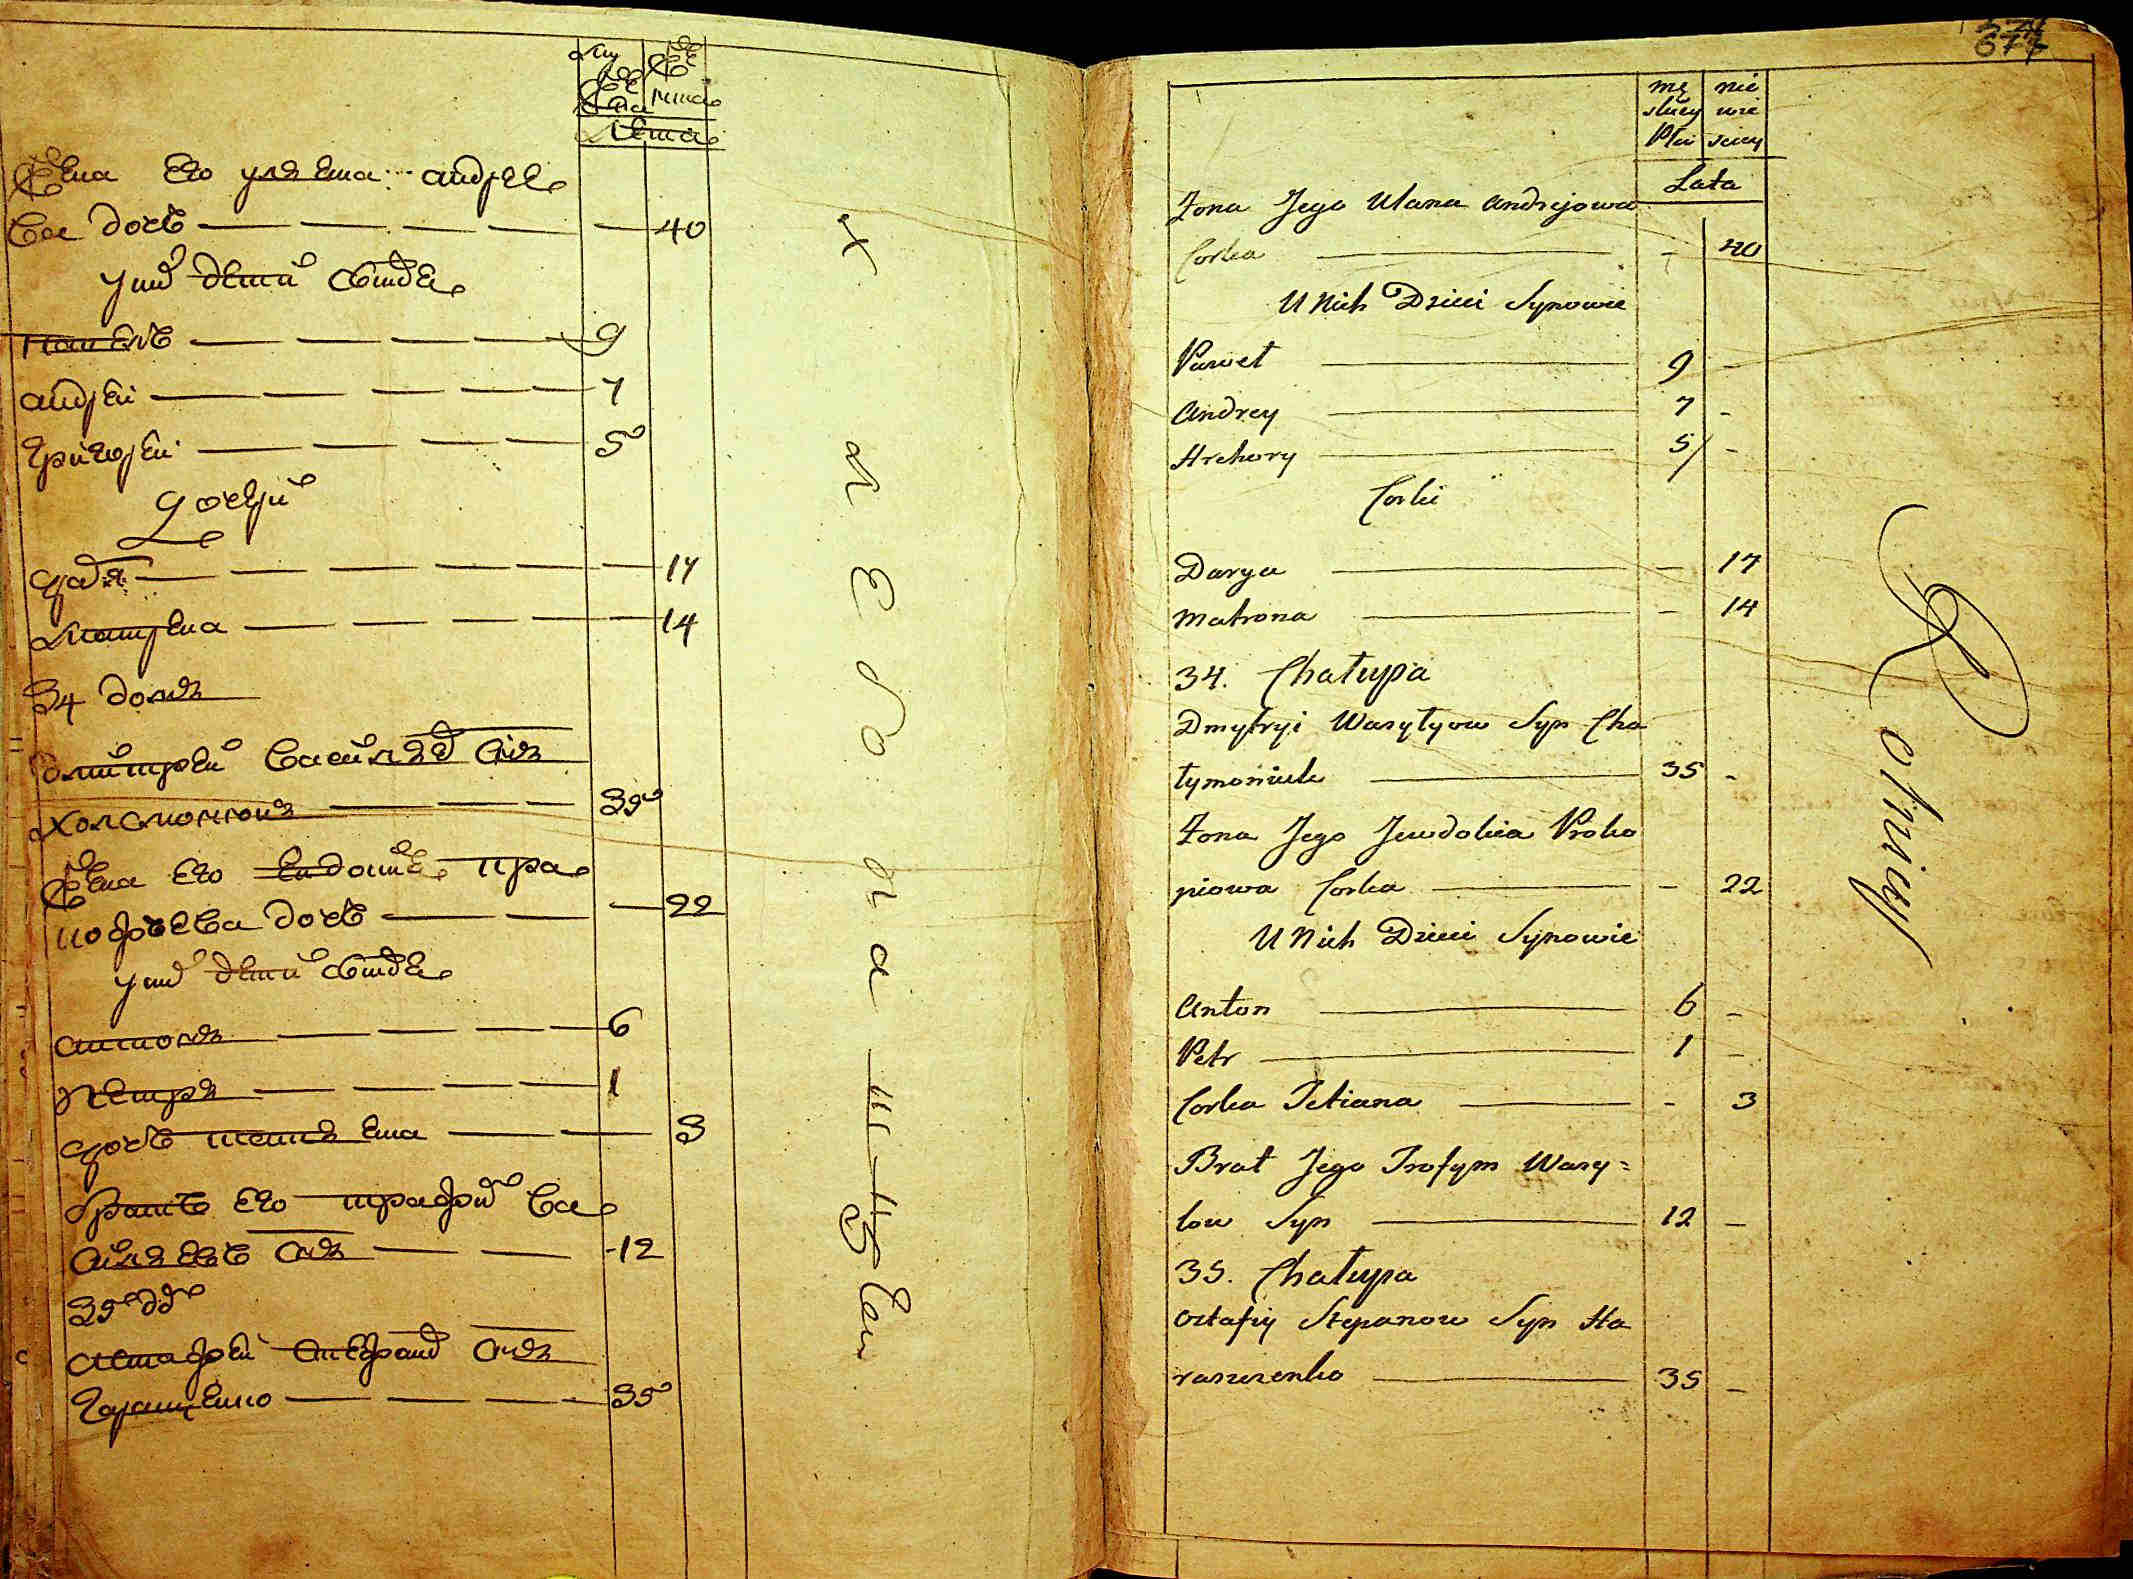 му
же
ска
же
нска
лета
жена его уляена андрее
ва дочь 40
у них дети свои де
павелъ 9
андрей 7
григорей 5
дочери
даря 17
матрена 14
34 домъ
дмитрей василев сынъ
холамонюкъ 35
жена его евдокия пра
кофьева дочь 22
у них дети
антонъ 6
петръ 1
дочь татяена 3
братъ его трофим ва
сильевъ сынъ 12
35 д
астафей степанов сынъ
гаращенко 35
674
mę nie
skiey wie
Płci sciey
Lata
Żona Jego Ulana Andrejowa
Corka - 40
U Nich Dzieci Synowie
Paweł 9 -
Andrey 7 -
Hrehory 5 -
Corki
Darya - 17
Matrona - 14
34. Chałupa
Dmytryi Wasyłyow Syn Cha
łymoniuk 35 -
Żona Jego Jewdokia Proko
piowa Corka - 22
U Nich Dzieci Synowie
Anton 6 -
Petr 1 -
Corka Tetiana - 3
Brat Jego Trofym Wasy=
low Syn 12 -
35. Chałupa
Ostafiy Stepanow Syn Ha
raszczenko 35 -